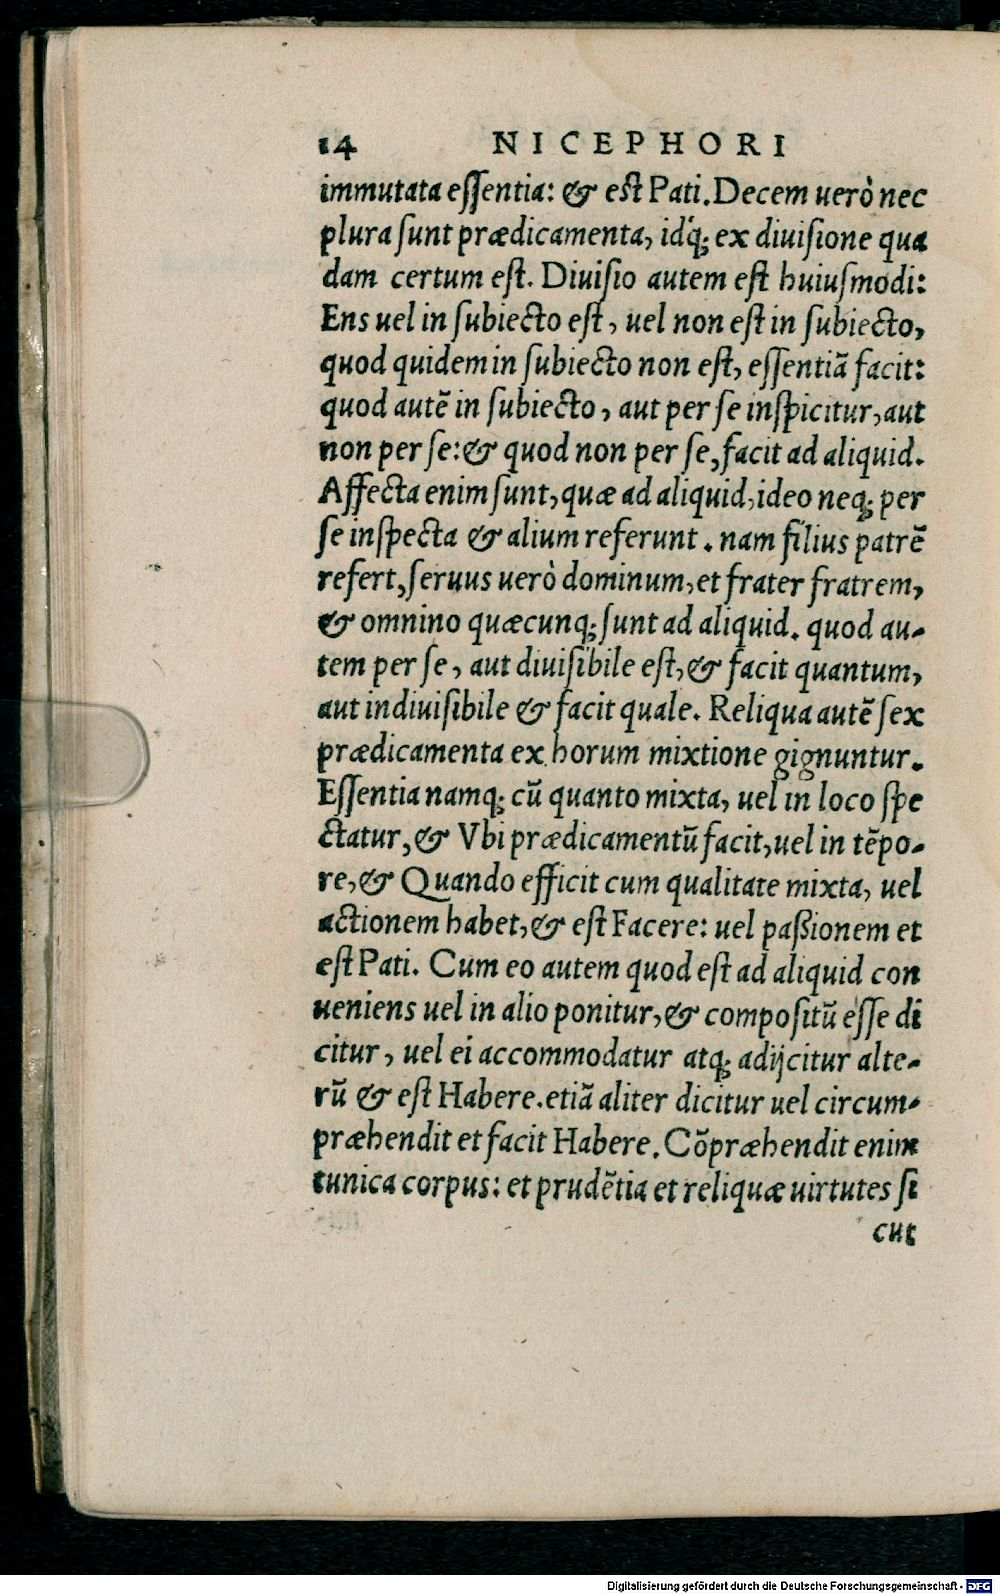 14 NICEPHORI
immutata eſſentia: & eſt Pati. Decem uerò nec
plura ſunt prædicamenta, idq́; ex diuiſione qua
dam certum eſt. Diuiſio autem eſt huiuſmodi:
Ens uel in ſubiecto eſt, uel non eſt in ſubiecto,
quod quidem in ſubiecto non eſt, eſſentiã facit:
quod autẽ in ſubiecto, aut per ſe inſpicitur, aut
non per ſe: & quod non per ſe, facit ad aliquid.
Affecta enim ſunt, quæ ad aliquid, ideo neq; per
ſe inſpecta & alium referunt. nam filius patrẽ
refert, ſeruus uerò dominum, et frater fratrem,
& omnino quæcunq; ſunt ad aliquid. quod au-
tem per ſe, aut diuiſibile eſt, & facit quantum,
aut indiuiſibile & facit quale. Reliqua autẽ ſex
prædicamenta ex horum mixtione gignuntur.
Eſſentia namq; cũ quanto mixta, uel in loco ſpe
ctatur, & Vbi prædicamentũ facit, uel in tẽpo-
re, & Quando efficit cum qualitate mixta, uel
actionem habet, & eſt Facere: uel paßionem et
eſt Pati. Cum eo autem quod eſt ad aliquid con
ueniens uel in alio ponitur, & compoſitũ eſſe di
citur, uel ei accommodatur atq; adijcitur alte-
rũ & eſt Habere. etiã aliter dicitur uel circum-
præhendit et facit Habere. Cõpræhendit enim
tunica corpus: et prudẽtia et reliquæ uirtutes ſi
cut
Digitalisierung gefördert durch die Deutsche Forschungsgemeinschaft - DFG